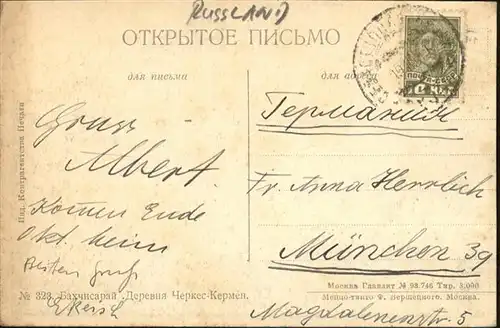 RUSSLAND
ОТКРЫТОЕ ПИСЬМО
для письма
для адреса
ПОЧТА СССР
Германия
Gruss
Albert
Komen Ende
Okt. heim
Besten Gruß
Fr. Anna Herrlich
München 39
Magdalenenstr. 5
Изд. Контрагентства Печати
№ 323. Бахчисарай. Деревня Черкес-Кермен.
Москва Главлит № 98.746 Тир. 3.000
Меццо-тинто Ф. Вернецкого. Москва.